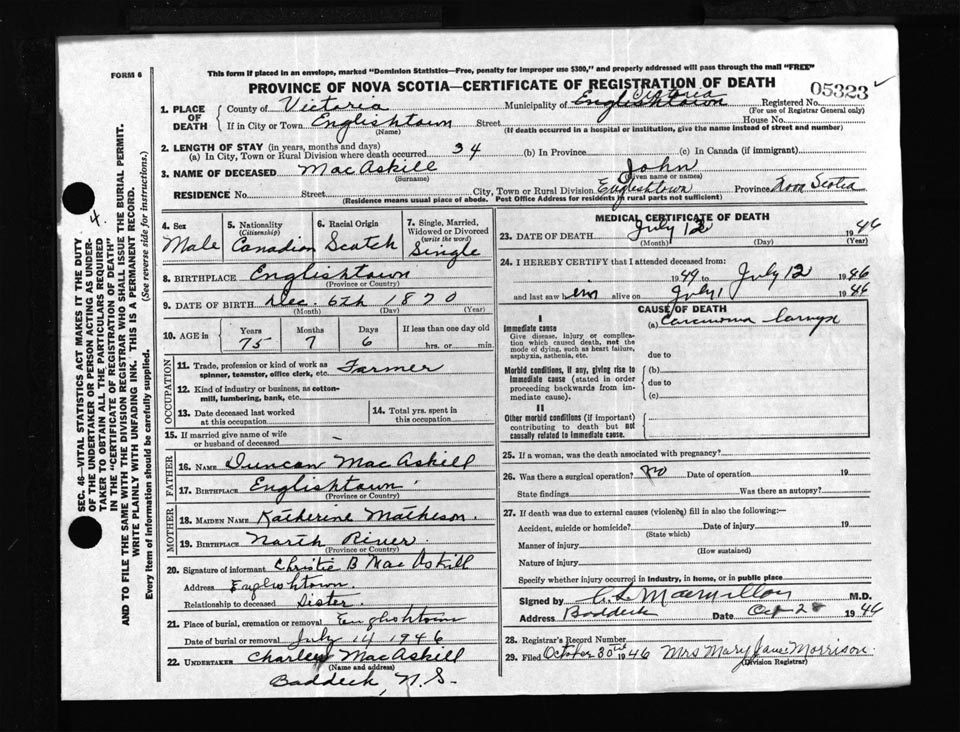 FORM 6
This form if placed in an envelope, marked "Dominion Statistics—Free, penalty for improper use $300," and properly addressed will pass through the mail "FREE"
PROVINCE OF NOVA SCOTIA—CERTIFICATE OF REGISTRATION OF DEATH
05323
1. PLACE OF DEATH
County of Victoria Municipality of Victoria Englishtown Registered No.
(For use of Registrar General only)
If in City or Town Englishtown Street House No.
(Name) (If death occurred in a hospital or institution, give the name instead of street and number)
2. LENGTH OF STAY (in years, months and days)
(a) In City, Town or Rural Division where death occurred 34 (b) In Province (c) In Canada (if immigrant)
3. NAME OF DECEASED MacAskill John
(Surname) (Given name or names)
RESIDENCE No. Street City, Town or Rural Division Englishtown Province Nova Scotia
(Residence means usual place of abode. Post Office Address for residents in rural parts not sufficient)
4. Sex
Male
5. Nationality
(Citizenship)
Canadian
6. Racial Origin
Scotch
7. Single, Married, Widowed or Divorced
(write the word)
Single
8. BIRTHPLACE Englishtown
(Province or Country)
9. DATE OF BIRTH Dec. 6th 1870
(Month) (Day) (Year)
10. AGE in
Years Months Days If less than one day old
75 7 6 hrs. or min.
OCCUPATION
11. Trade, profession or kind of work as spinner, teamster, office clerk, etc. Farmer
12. Kind of industry or business, as cotton-mill, lumbering, bank, etc.
13. Date deceased last worked at this occupation
14. Total yrs. spent in this occupation
15. If married give name of wife or husband of deceased —
FATHER
16. NAME Duncan MacAskill
17. BIRTHPLACE Englishtown
(Province or Country)
MOTHER
18. MAIDEN NAME Katherine Matheson
19. BIRTHPLACE North River
(Province or Country)
20. Signature of informant Christie B MacAskill
Address Englishtown.
Relationship to deceased Sister
21. Place of burial, cremation or removal Englishtown
Date of burial or removal July 14 1946
22. UNDERTAKER Charles MacAskill
(Name and address)
Baddeck, N.S.
MEDICAL CERTIFICATE OF DEATH
23. DATE OF DEATH July 12 1946
(Month) (Day) (Year)
24. I HEREBY CERTIFY that I attended deceased from:
1944 to July 12 1946
and last saw him alive on July 1 1946
CAUSE OF DEATH
I
Immediate cause
Give disease, injury or complication which caused death, not the mode of dying, such as heart failure, asphyxia, asthenia, etc.
(a) Carcinoma Larynx
due to
Morbid conditions, if any, giving rise to immediate cause (stated in order proceeding backwards from immediate cause).
(b)
due to
(c)
II
Other morbid conditions (if important) contributing to death but not causally related to immediate cause.
25. If a woman, was the death associated with pregnancy?
26. Was there a surgical operation? no Date of operation 19
State findings Was there an autopsy?
27. If death was due to external causes (violence) fill in also the following:—
Accident, suicide or homicide? Date of injury 19
(State which)
Manner of injury
(How sustained)
Nature of injury
Specify whether injury occurred in industry, in home, or in public place
Signed by C. L. MacMillan M.D.
Baddeck Date Oct 28 1946
28. Registrar's Record Number
29. Filed October 30th 1946 Mrs Mary Jane Morrison
(Division Registrar)
SEC. 46—VITAL STATISTICS ACT MAKES IT THE DUTY
OF THE UNDERTAKER OR PERSON ACTING AS UNDERTAKER TO OBTAIN ALL THE PARTICULARS REQUIRED
IN THE "CERTIFICATE OF REGISTRATION OF DEATH"
AND TO FILE THE SAME WITH THE DIVISION REGISTRAR WHO SHALL ISSUE THE BURIAL PERMIT.
WRITE PLAINLY WITH UNFADING INK. THIS IS A PERMANENT RECORD.
Every item of information should be carefully supplied. (See reverse side for instructions.)
4.